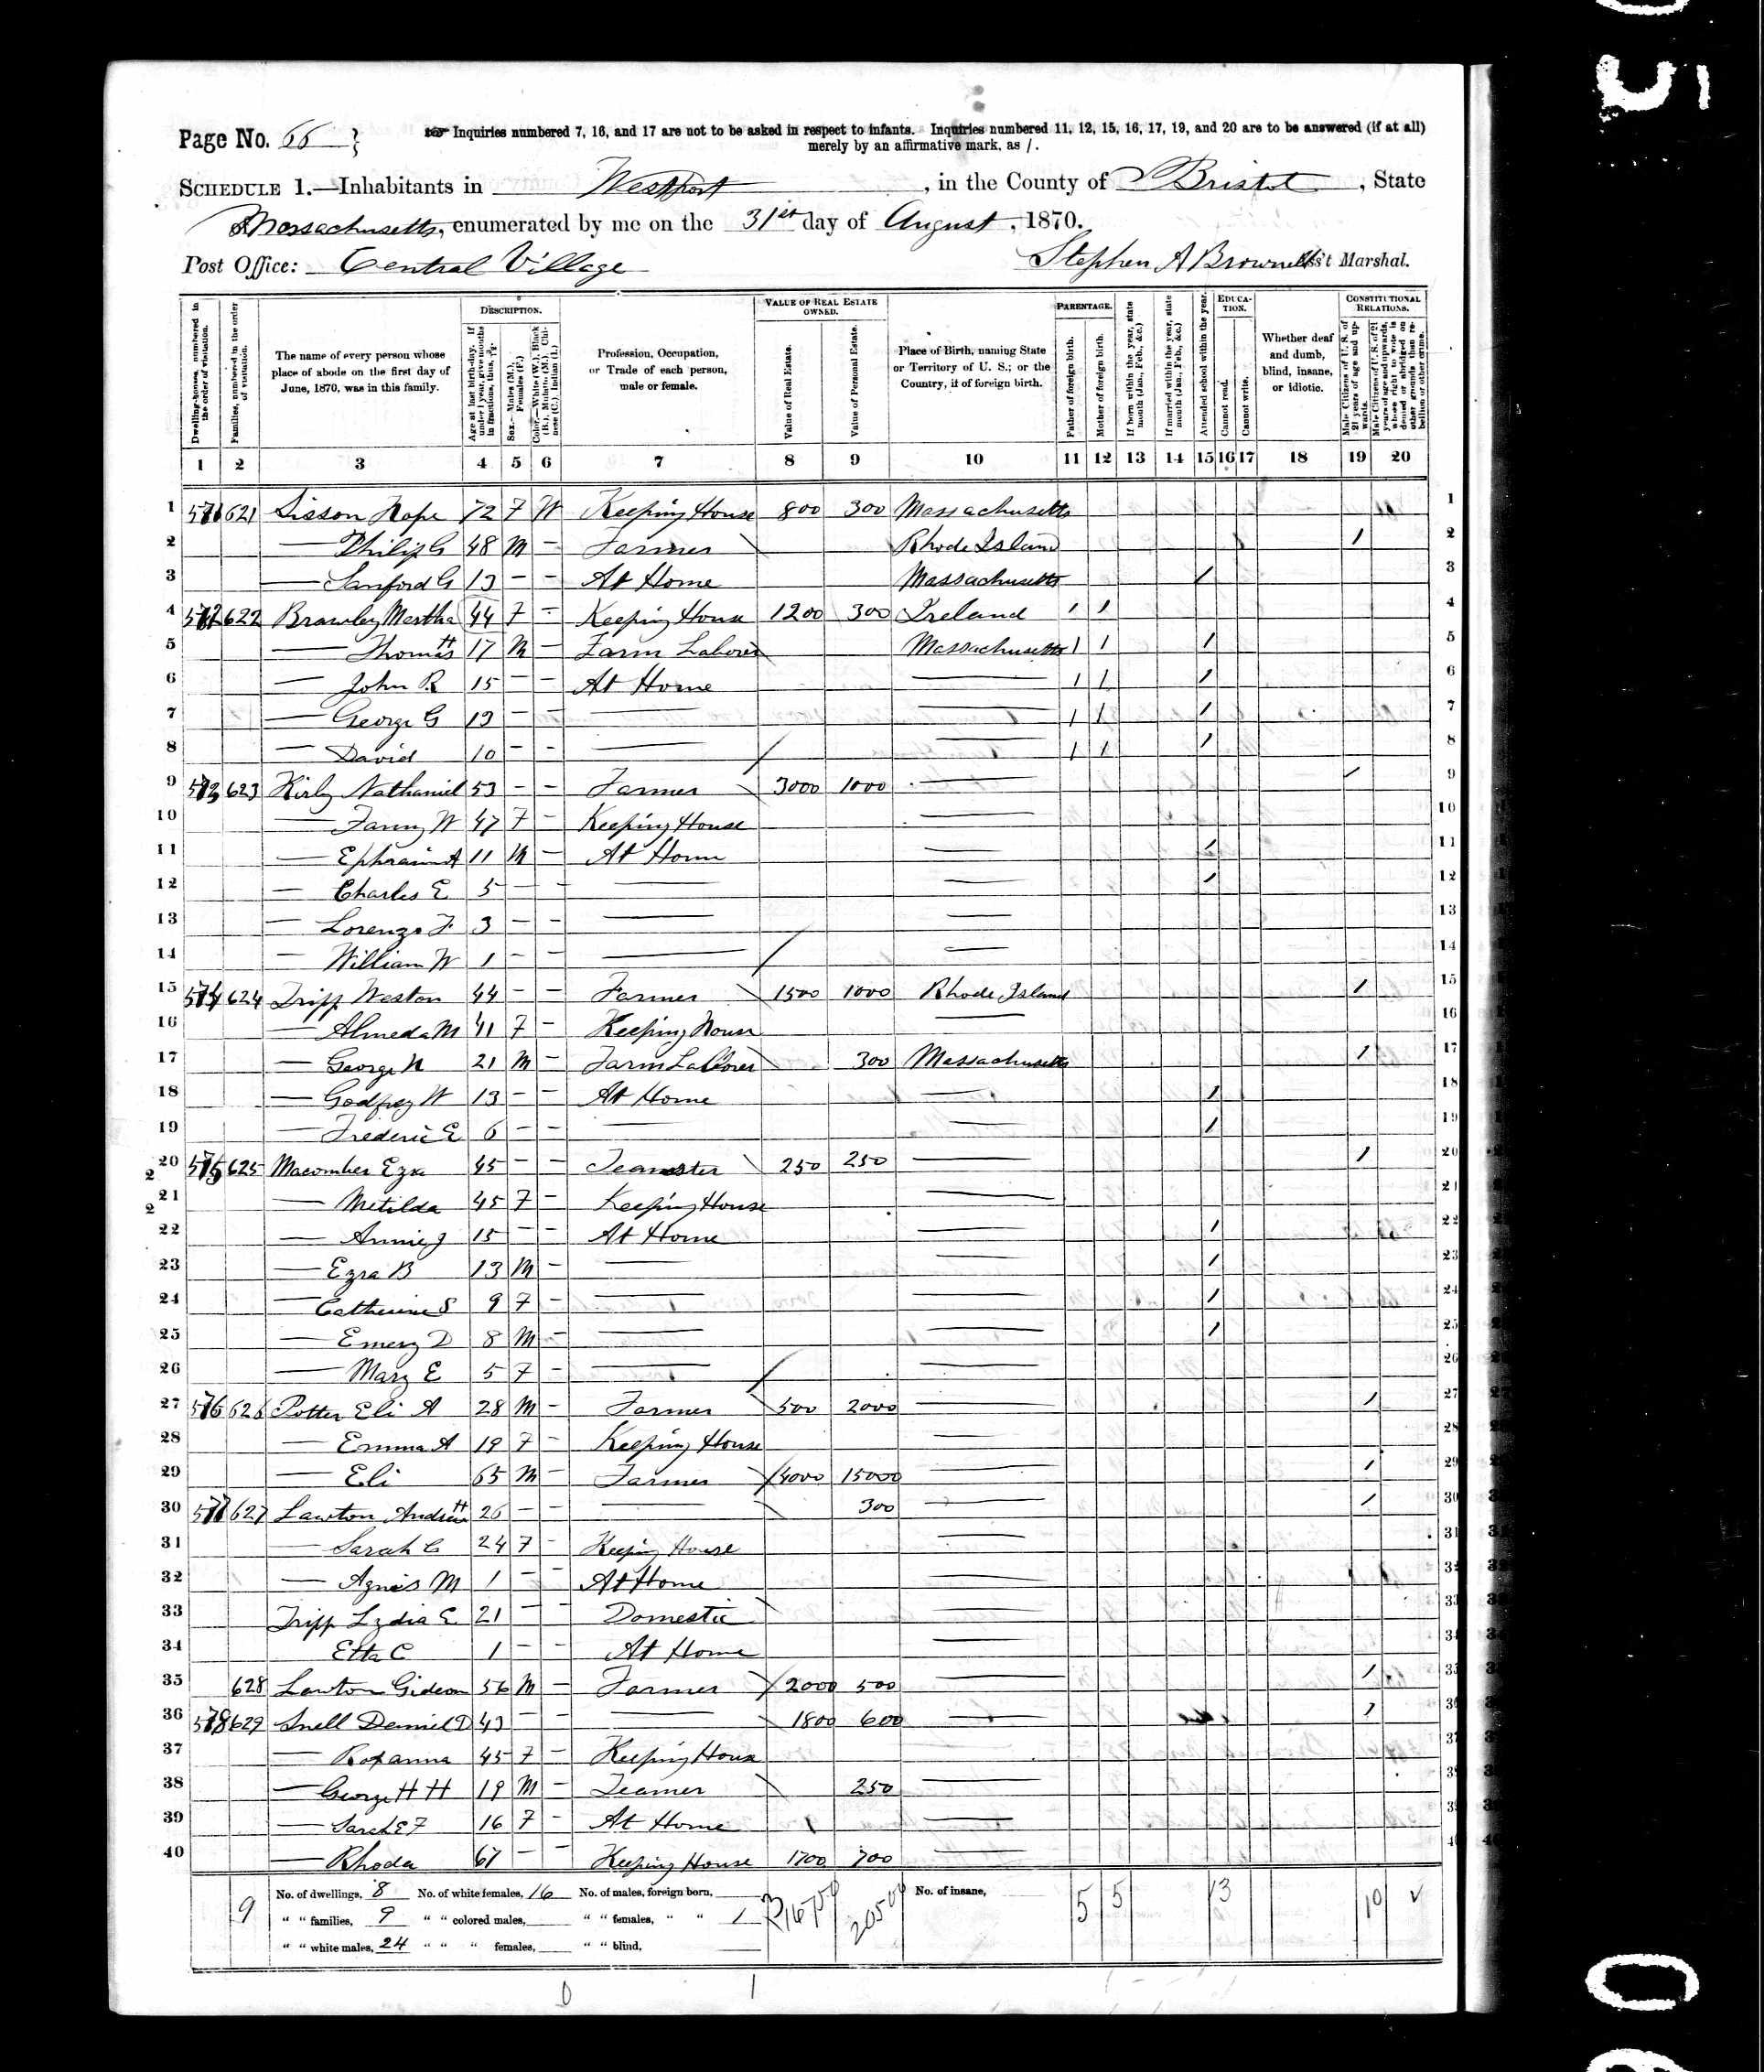 Page No. 66
Inquiries numbered 7, 16, and 17 are not to be asked in respect to infants. Inquiries numbered 11, 12, 15, 16, 17, 19, and 20 are to be answered (if at all)
merely by an affirmative mark, as /.
SCHEDULE 1.—Inhabitants in Westport, in the County of Bristol, State
Massachusetts, enumerated by me on the 31st day of August, 1870.
Post Office: Central Village
Stephen A Brownell Ass't Marshal.
Dwelling-houses, numbered in the order of visitation.
Families, numbered in the order of visitation.
The name of every person whose place of abode on the first day of June, 1870, was in this family.
DESCRIPTION.
Age at last birth-day. If under 1 year, give months in fractions, thus, 3/12.
Sex.—Males (M.), Females (F.)
Color.—White (W.), Black (B.), Mulatto (M.), Chinese (C.), Indian (I.)
Profession, Occupation, or Trade of each person, male or female.
VALUE OF REAL ESTATE OWNED.
Value of Real Estate.
Value of Personal Estate.
Place of Birth, naming State or Territory of U. S.; or the Country, if of foreign birth.
PARENTAGE.
Father of foreign birth.
Mother of foreign birth.
If born within the year, state month (Jan., Feb., &c.)
If married within the year, state month (Jan., Feb., &c.)
Attended school within the year.
EDUCATION.
Cannot read.
Cannot write.
Whether deaf and dumb, blind, insane, or idiotic.
CONSTITUTIONAL RELATIONS.
Male Citizens of U. S. of 21 years of age and upwards.
Male Citizens of U. S. of 21 years of age and upwards, whose right to vote is denied or abridged on other grounds than rebellion or other crime.
1 2 3 4 5 6 7 8 9 10 11 12 13 14 15 16 17 18 19 20
1 571 621 Sisson Hope 72 F W Keeping House 800 300 Massachusetts 1
2 — Philip G 48 M – Farmer Rhode Island / 2
3 — Sanford G 13 – – At Home Massachusetts / 3
4 572 622 Brawley Martha 44 F – Keeping House 1200 300 Ireland / / 4
5 — Thomas H 17 M – Farm Laborer Massachusetts / / / 5
6 — John R 15 – – At Home — / / / 6
7 — George G 13 – – — — / / / 7
8 — David 10 – – — — / / / 8
9 573 623 Kirby Nathaniel 53 – – Farmer 3000 1000 — / 9
10 — Fanny W 47 F – Keeping House — 10
11 — Ephraim A 11 M – At Home — / 11
12 — Charles E 5 – – — — / 12
13 — Lorenzo F 3 – – — — 13
14 — William W 1 – – — — 14
15 574 624 Tripp Weston 44 – – Farmer 1500 1000 Rhode Island / 15
16 — Almeda M 41 F – Keeping House — 16
17 — George N 21 M – Farm Laborer 300 Massachusetts / 17
18 — Godfrey W 13 – – At Home — / 18
19 — Frederic E 6 – – — — / 19
20 575 625 Macomber Ezra 45 – – Teamster 250 250 — / 20
21 — Metilda 45 F – Keeping House — 21
22 — Annie J 15 – – At Home — / 22
23 — Ezra B 13 M – — — / 23
24 — Catherine S 9 F – — — / 24
25 — Emery D 8 M – — — / 25
26 — Mary E 5 F – — — 26
27 576 626 Potter Eli A 28 M – Farmer 500 2000 — / 27
28 — Emma A 19 F – Keeping House — 28
29 — Eli 65 M – Farmer 4000 15000 — / 29
30 577 627 Lawton Andrew H 26 – – — 300 — / 30
31 — Sarah C 24 F – Keeping House — 31
32 — Agnes M 1 – – At Home — 32
33 Tripp Lydia E 21 – – Domestic — 33
34 Etta C 1 – – At Home — 34
35 628 Lawton Gideon 56 M – Farmer 2000 500 — / 35
36 578 629 Snell Daniel D 43 – – — 1800 600 — / 36
37 — Roxanna 45 F – Keeping House — 37
38 — George H H 19 M – Teamer 250 — 38
39 — Sarah E F 16 F – At Home — 39
40 — Rhoda 67 – – Keeping House 1700 700 — 40
9 No. of dwellings, 8 No. of white females, 16 No. of males, foreign born, No. of insane, 5 5 13 10 ✓
" " families, 9 " " colored males, " " females, " " 1
" " white males, 24 " " " females, " " blind,